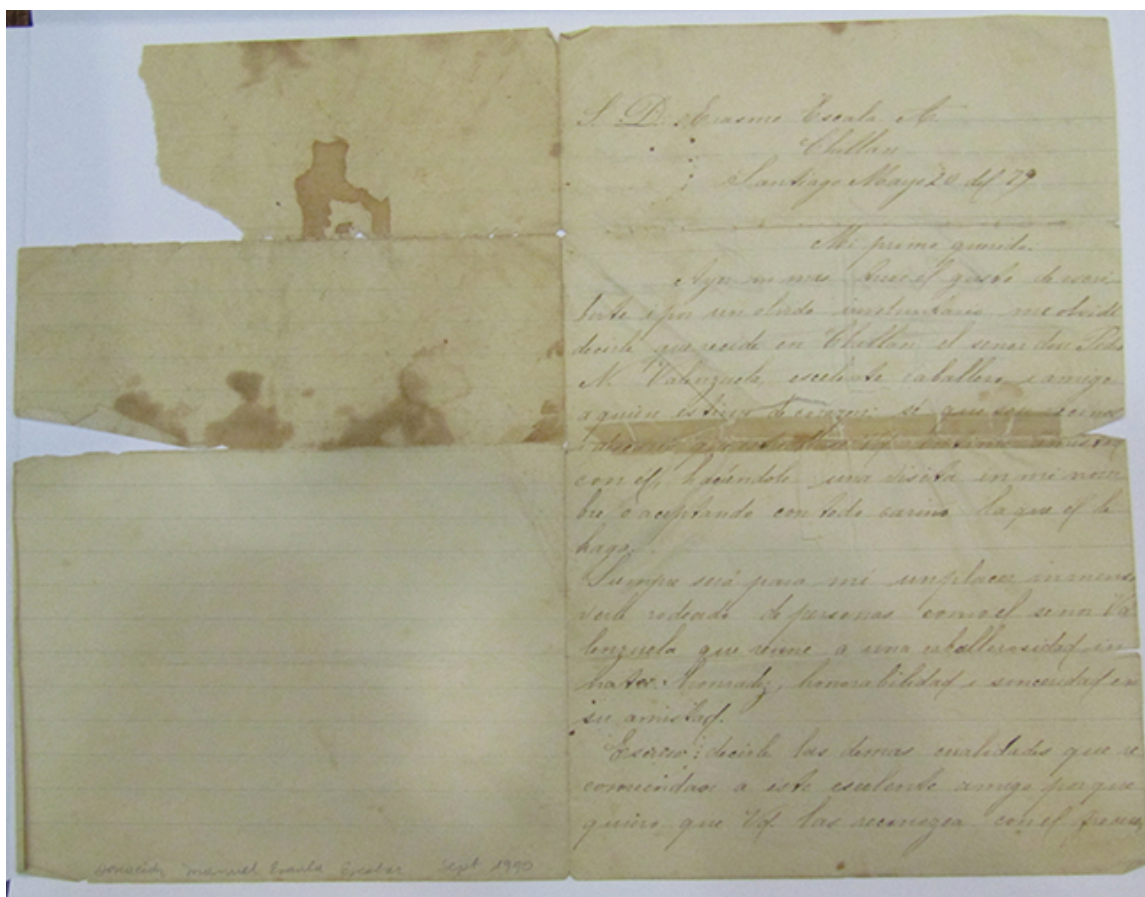 S. D. Erasmo Escala A.
Chillan
Santiago Mayo 20 del 79
Mi primo querido:
Ayer no mas tuve el gusto de escri-
birte i por un olvido involuntario me olvidé
decirle que recide en Chillan el señor don Pedro
N. Valenzuela, escelente caballero i amigo
a quien estimo de corazon: sé que son vecinos
con el, haciéndole una visita en mi nom
bre o aceptando con todo cariño la que el le
haga.
Siempre será para mi un placer inmenso
verle rodeado de personas como el señor Va
lenzuela que reune a una caballerosidad in
nata: honradez, honorabilidad i sinceridad en
su amistad.
Escuso decirle las demas cualidades que re
comiendan a este escelente amigo porque
quiero que Ud. las reconozca con el
Donación Manuel Escala Escobar Sept. 1990